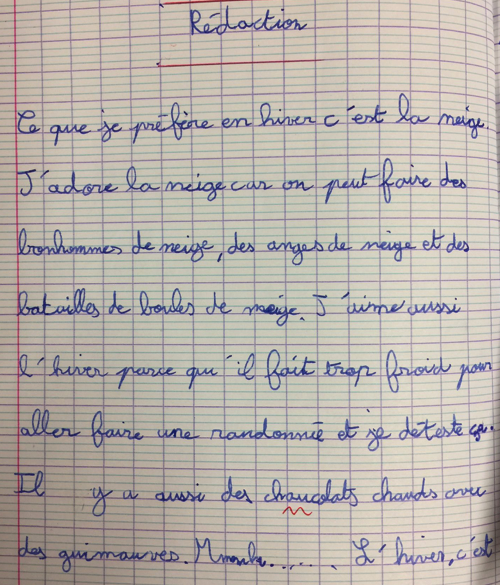 Rédaction
Ce que je préfère en hiver c'est la neige.
J'adore la neige car on peut faire des
bonhommes de neige, des anges de neige et des
batailles de boules de neige. J'aime aussi
l'hiver parce qu'il fait trop froid pour
aller faire une randonnée et je déteste ça.
Il y a aussi des chaucolats chauds avec
des guimauves. L'hiver, c'est